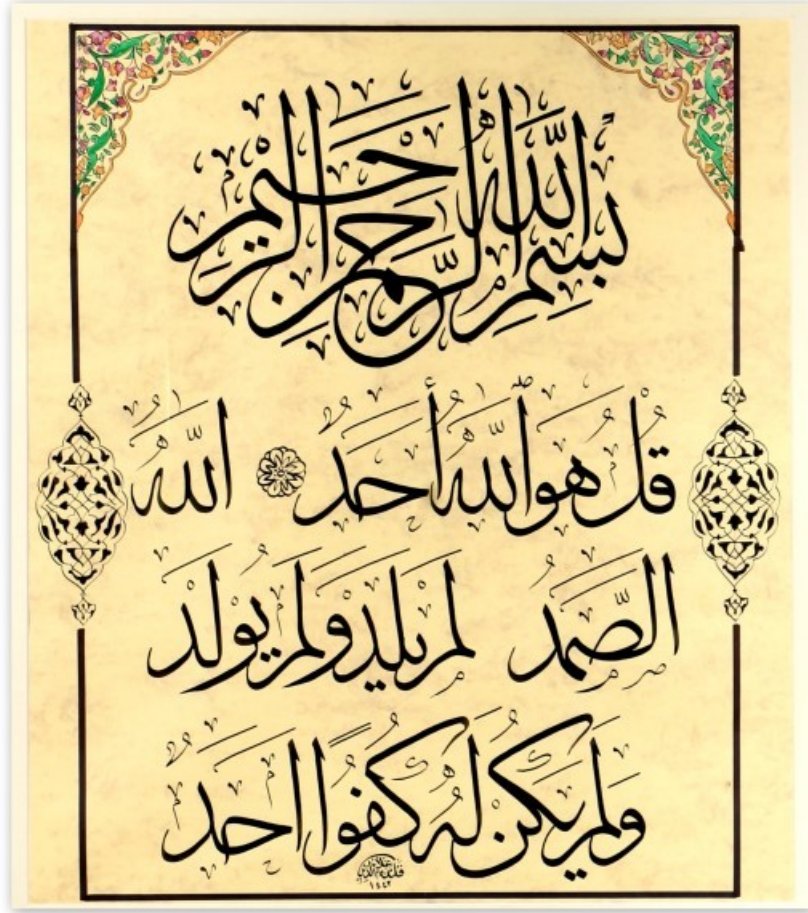 بسم الله الرحمن الرحيم
قُل هُوَ اللّٰهُ أَحَدٌ اللّٰهُ
الصَّمَدُ لم يلد ولم يولد
ولم يكن له كفوًا احد
١٤٤٢